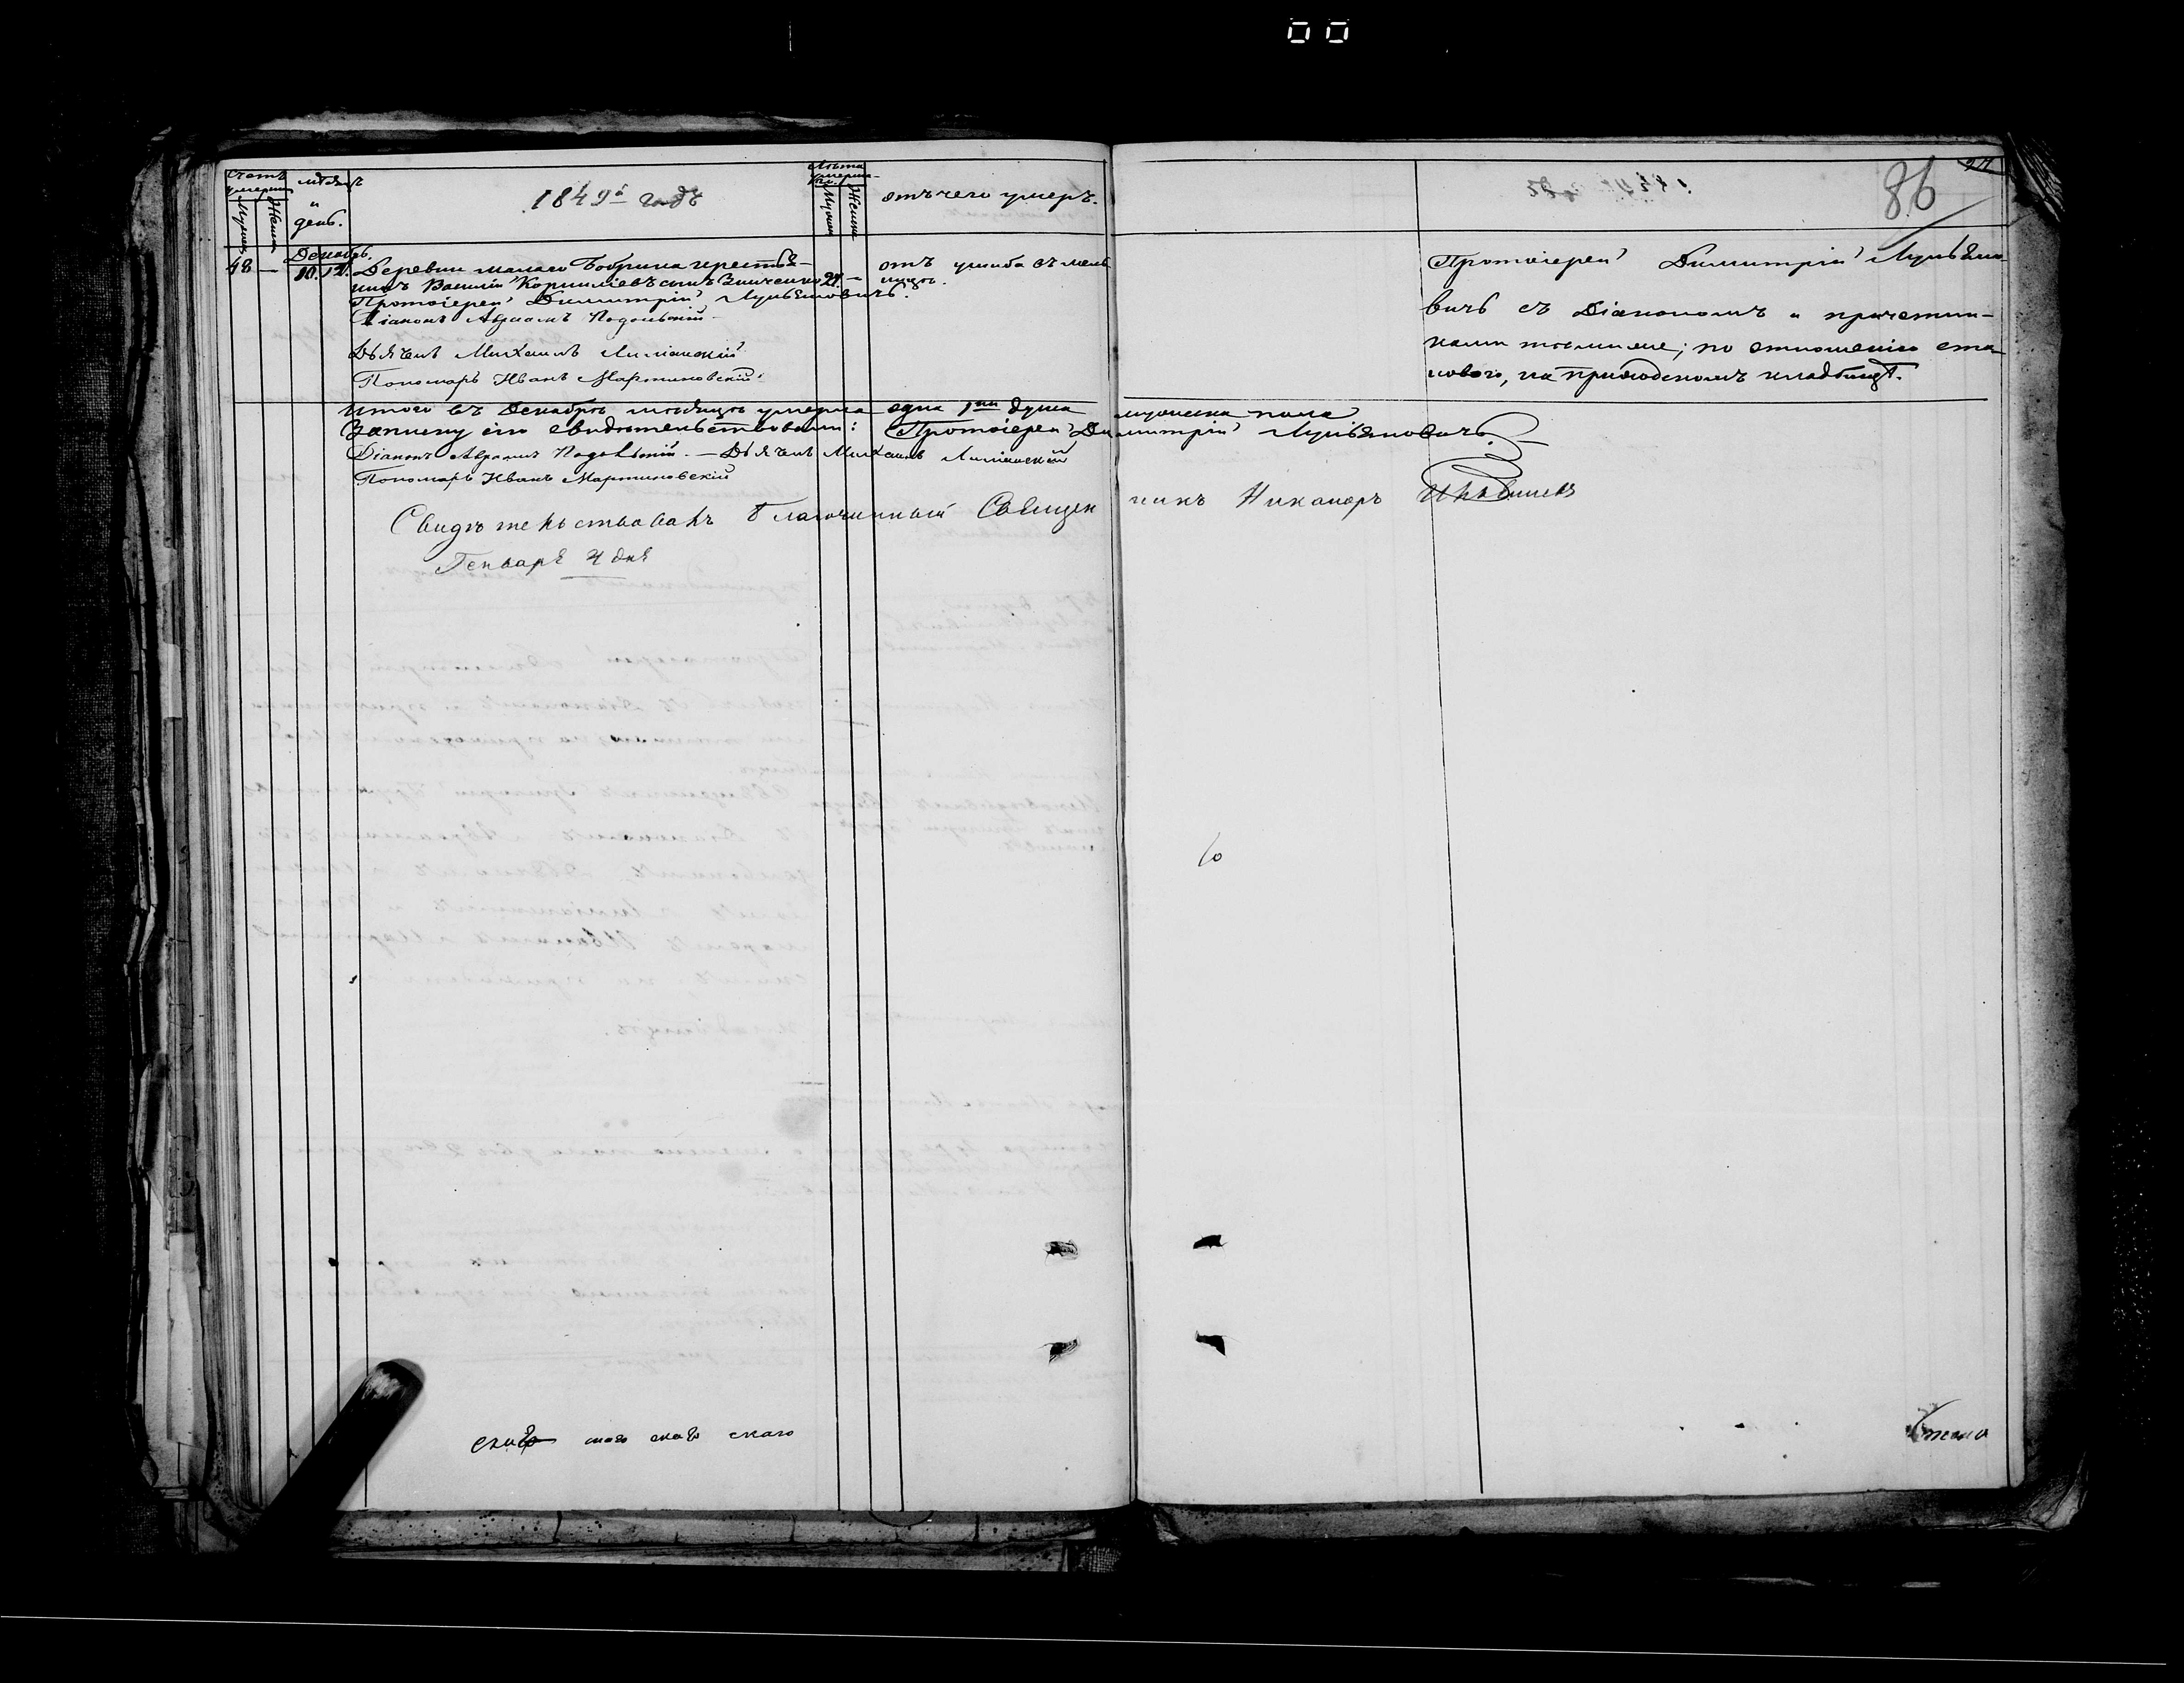 Счетъ умершихъ
Мужеск Женск
мѣсяцъ и день.
1849й годъ
Лѣта умерша-
го.
Мужск Женска
отъ чего умеръ.
86
Декабрь.
48 — 10. 12. Деревни малаго Бобрика крестья-
нинъ Василій Корниліевъ сынъ 21. —
отъ ушиба съ мель
ницы.
Протоіерей Димитрій
Діаконъ Авраамъ Подольскій
Дьячекъ Михаилъ
Пономарь Иванъ Мартиновскій
Протоіерей Димитрій
вичь съ Діакономъ и причетни-
ками тѣмиже; по отношенію ста-
новаго, на приходскомъ кладбищѣ.
Итого въ Декабрѣ мѣсяцѣ умерла одна 1на душа мужеска пола
Записку сію свидѣтельствовали: Протоіерей Димитрій
Діаконъ Авраамъ Подольскій. — Дьячекъ Михаилъ
Пономарь Иванъ Мартиновскій
Свидѣтельствовалъ Благочинный Священникъ Никаноръ
Генваря 4 дня
скаго скаго скаго